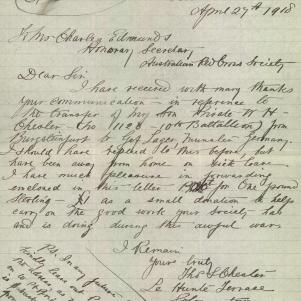 April 27th 1918
To Mrs Charley Edmunds
Honorary Secretary
Australian Red Cross Society
Dear Sir
I have received with many thanks
your communication - in reference to
the transfer of my Son Private W H
Chester (No 1128 10th Battalion) from
Burgsteinfurt to Gef. Lager, Munster Germany.
I should have replied to this before but
have been away from home on sick leave
I have much pleasure in forwarding
enclosed in this letter for One pound
Sterling - £1 as a small donation to help
carry on the good work your Society has
and is doing during this awful war
I Remain
Yours truly
Thos S Chester
Le Hunte Terrace
P.S. In any future